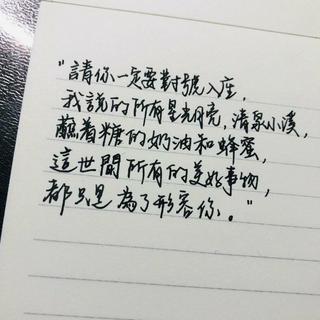 "請你一定要對號入座，
我說的所有星光月亮，清泉小溪，
蘸着糖的奶油和蜂蜜，
這世間所有的美好事物，
都只是為了形容你。"